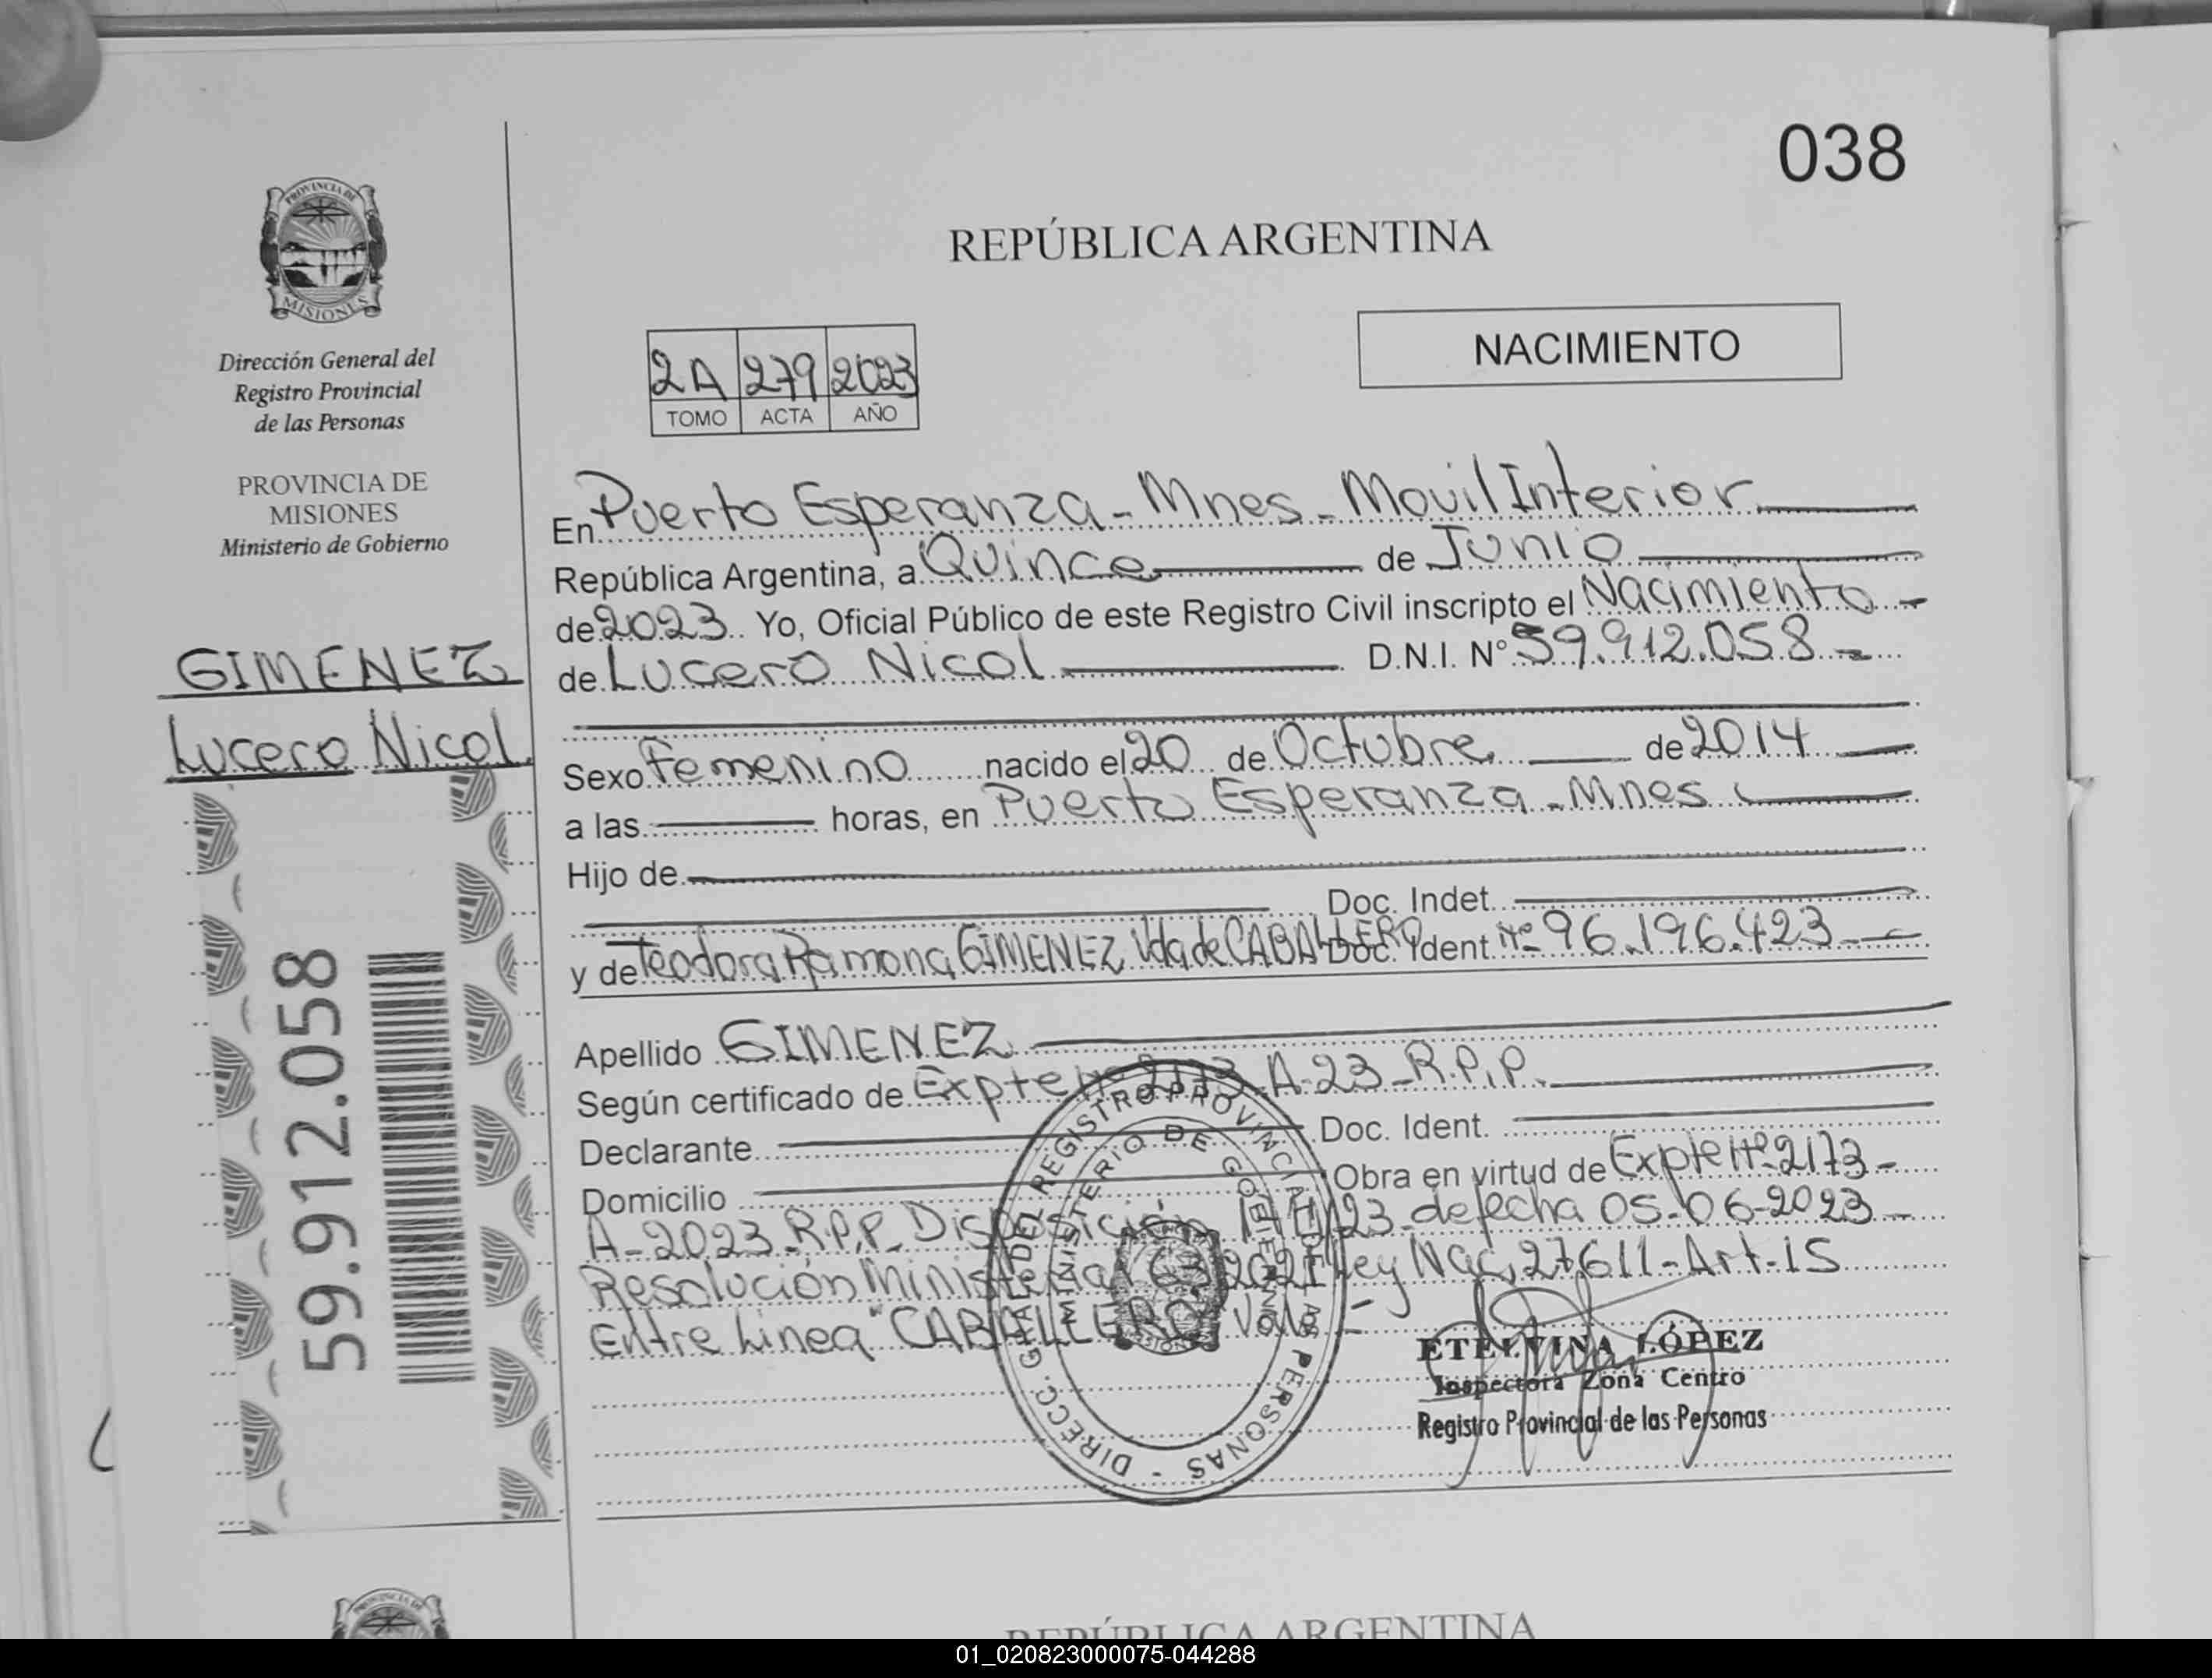 038
PROVINCIA DE
MISIONES
Dirección General del
Registro Provincial
de las Personas
PROVINCIA DE
MISIONES
Ministerio de Gobierno
GIMENEZ
Lucero Nicol
59.912.058
REPÚBLICA ARGENTINA
NACIMIENTO
2A 279 2023
TOMO ACTA AÑO
En Puerto Esperanza - Mnes - Movil Interior
República Argentina, a Quince de Junio
de 2023 Yo, Oficial Público de este Registro Civil inscripto el Nacimiento -
de Lucero Nicol D.N.I. N° 59.912.058 -
Sexo Femenino nacido el 20 de Octubre de 2014
a las horas, en Puerto Esperanza - Mnes
Hijo de
Doc. Indet.
y de Teodora Ramona GIMENEZ Vda de CABALLERO Doc. Ident. Nº 96.196.423
Apellido GIMENEZ
Según certificado de Expte Nº 2173 A-23-R.P.P.
Declarante Doc. Ident.
Domicilio Obra en virtud de Expte Nº 2173 -
A-2023-R.P.P. Disposición /23 - de fecha 05-06-2023 -
Resolución Ministerial 63/2021 Ley Nac. 27611 - Art - 15
Entre Linea "CABALLERO" Vale -
DIRECC. GRAL. DEL REGISTRO PROVINCIAL DE LAS PERSONAS -
MINISTERIO DE GOBIERNO
ETELVINA LÓPEZ
Inspectora Zona Centro
Registro Provincial de las Personas
REPÚBLICA ARGENTINA
01_020823000075-044288